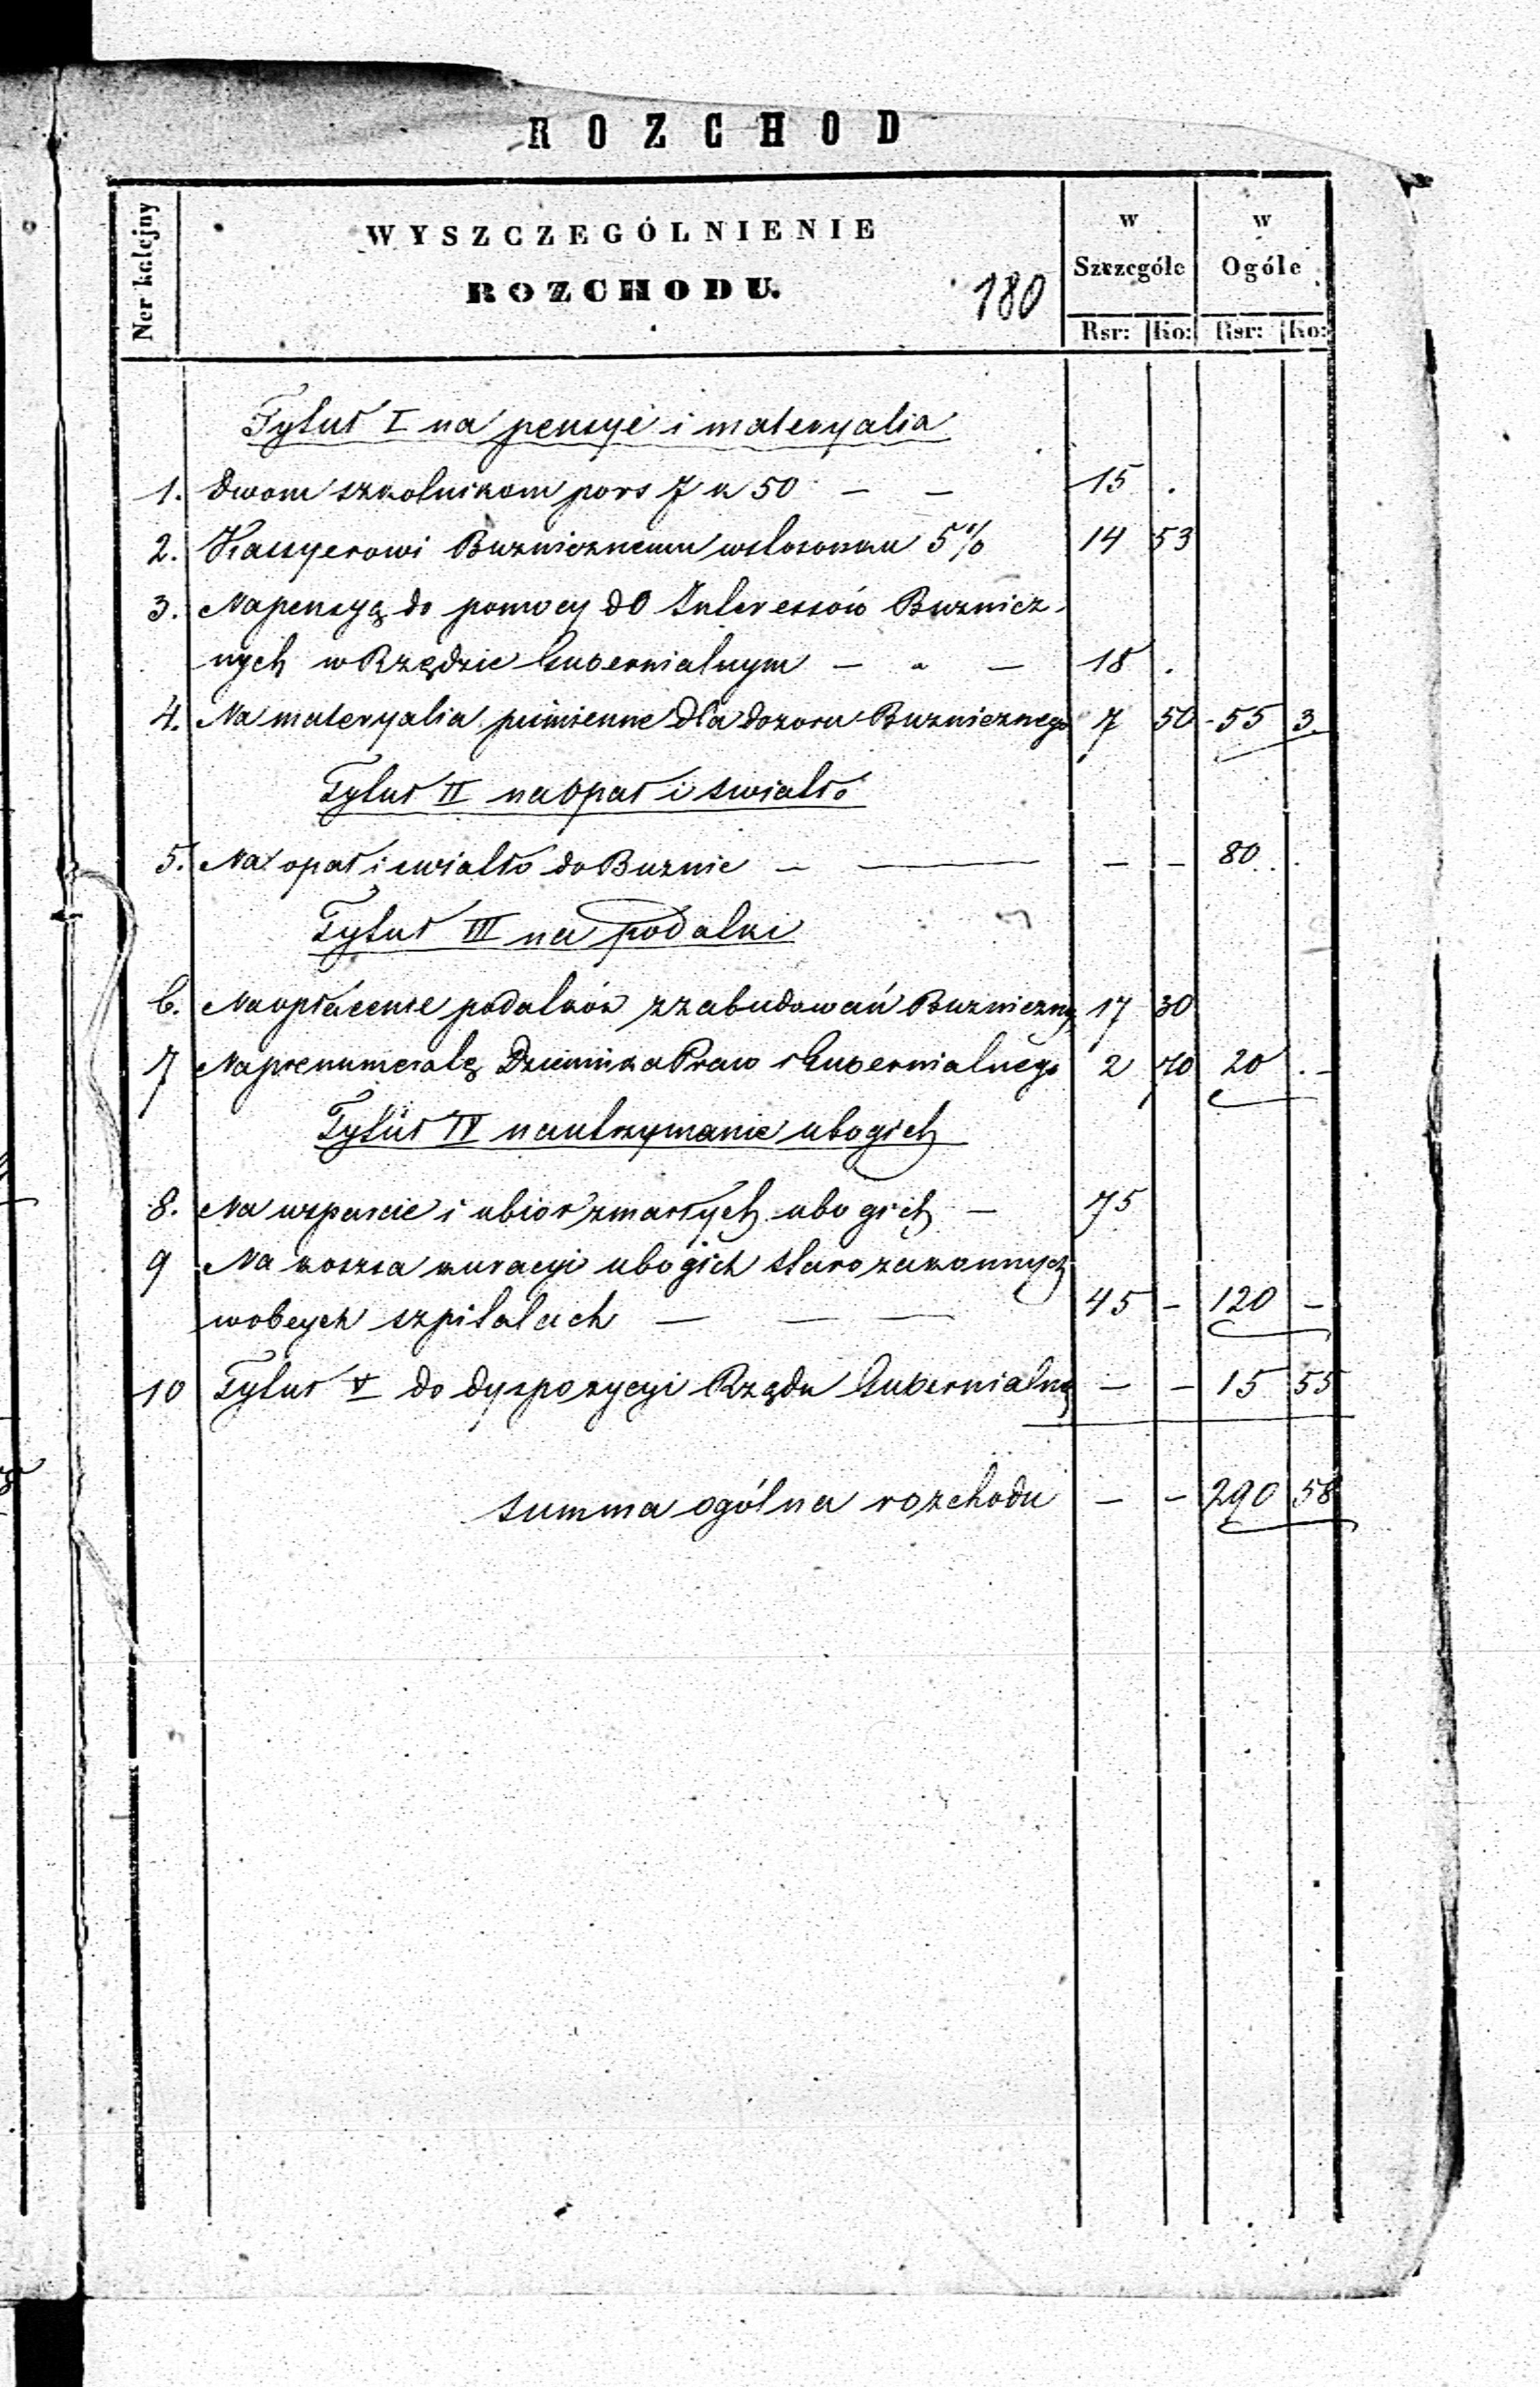 ROZCHOD
Ner kolejny
WYSZCZEGÓLNIENIE
ROZCHODU.
180
w Szczególe
w Ogóle
Rsr: Ko: Rsr: Ko:
Tytuł I na pensye i materyalia
1. Dwom szkolnikom po rs 7 k 50 — — 15 .
2. Kassyerowi Buznicznemu w stosonku 5% 14 53
3. Na pensyą do pomocy do Interessów Buznicz-
nych w Rządzie Gubernialnym — " — 18 .
4. Na materyalia piśmienne dla dozoru Buznicznego 7 50 - 55 3.
Tytuł II na opał i światło
5. Na opał i światło do Buznic — — — — 80 .
Tytuł III na podatki
6. Na opłacenie podatków z zabudowań Buzniczny 17 30
7 Na prenumeratę Dziennika Praw i Gubernialnego 2 70 20 . -
Tytuł IV na utrzymanie ubogich
8. Na wsparcie i ubior zmarłych ubogich — 75
9 Na koszta kuracyi ubogich starozakonnych
w obcych szpitalach — — — 45 - 120 -
10 Tytuł V do dyspozycyi Rządu Gubernialng — - 15 55
Summa ogólna rozchodu — - 290 58